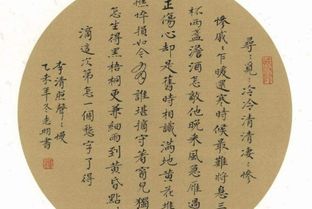 尋〻覓〻冷冷清清凄〻慘
慘戚〻乍暖還寒時候最難將息三
杯兩盞澹酒怎敵他晚來風急雁過
正傷心却是舊時相識滿地黃花堆
憔悴損如今有誰堪摘守著窗兒獨
怎生得黑梧桐更兼細雨到黃昏點
滴這次第怎一個愁字了得
李清照聲〻慢
乙未年冬志明書